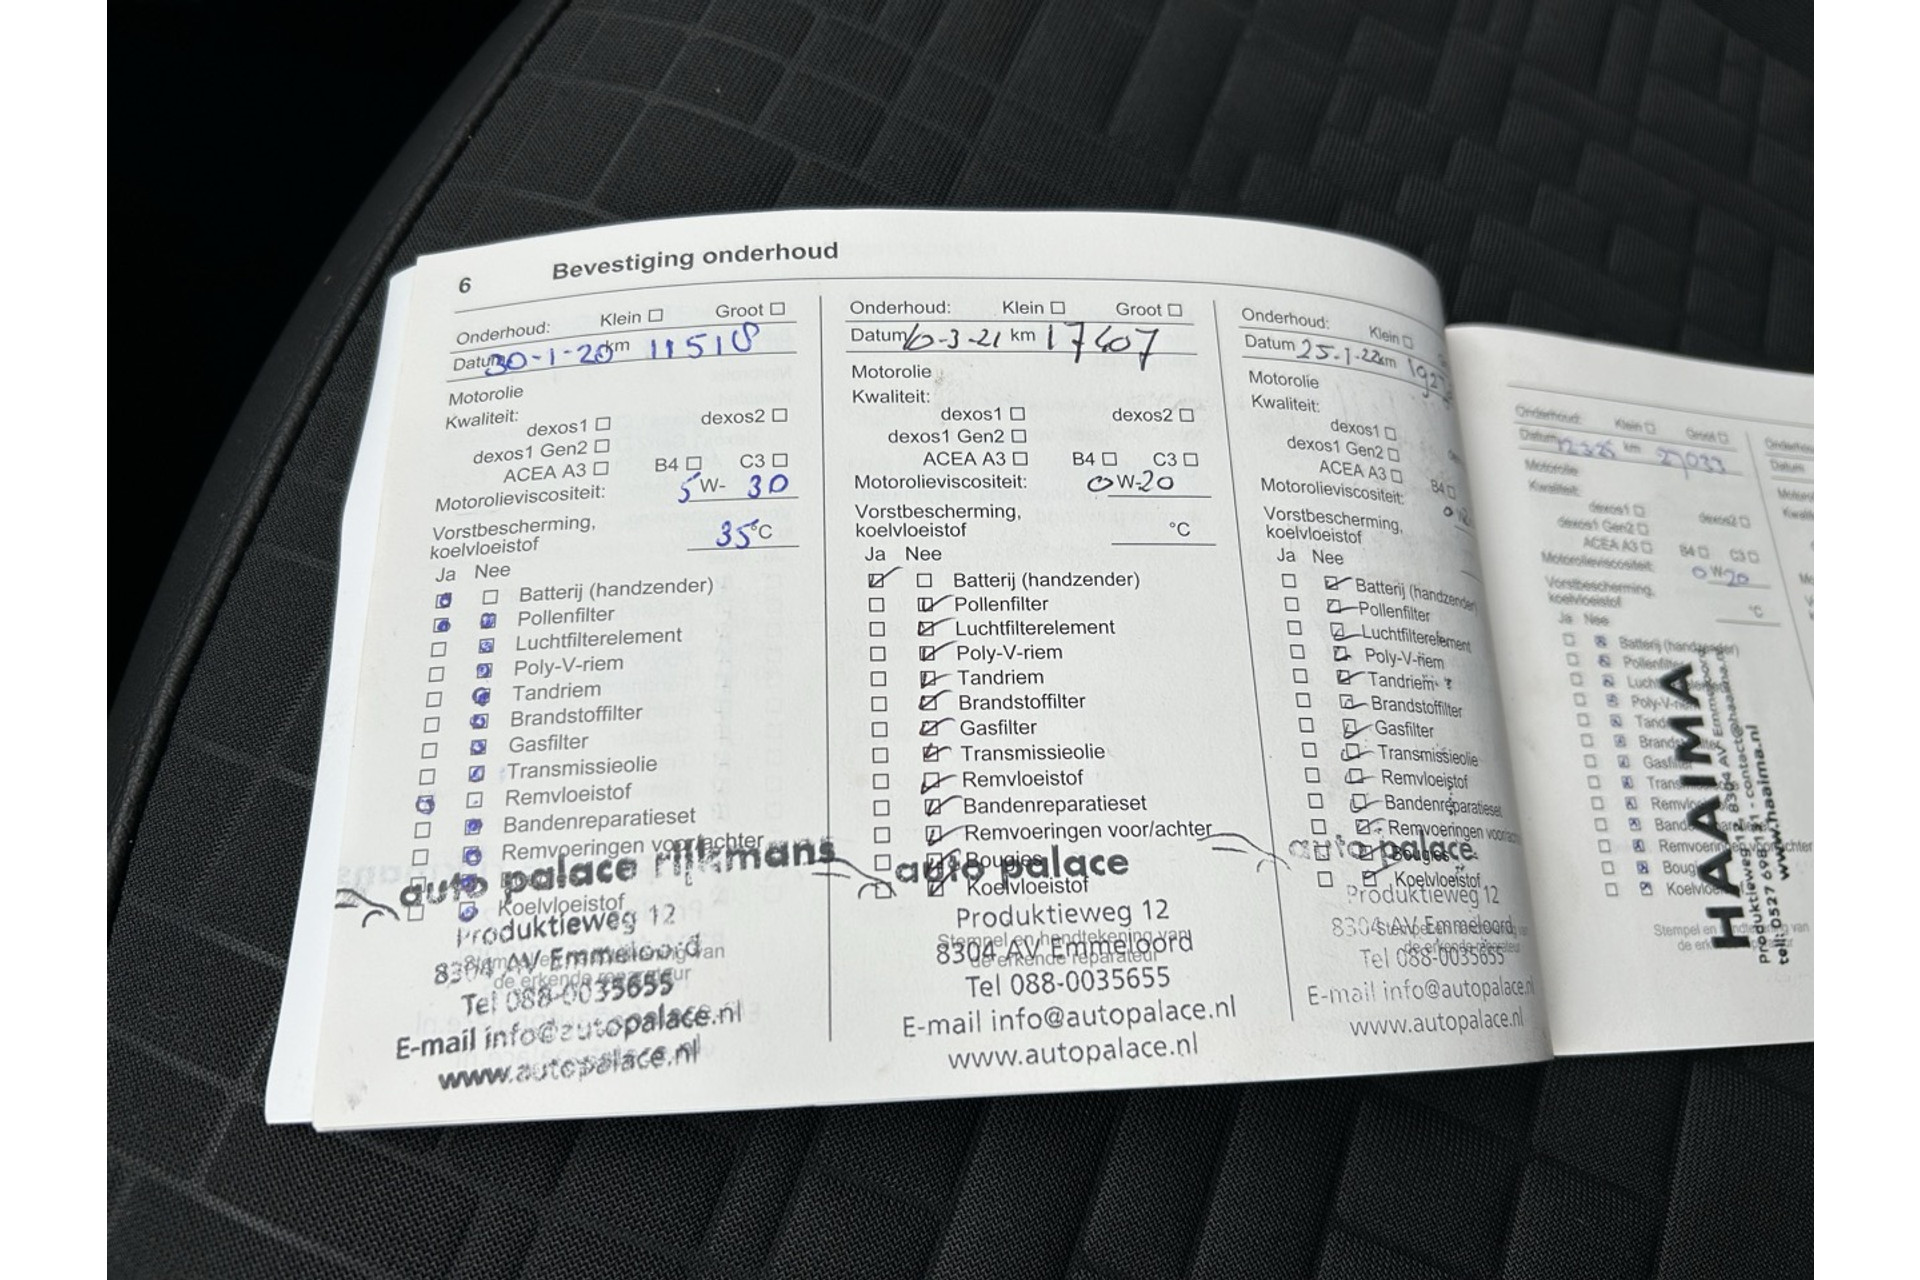 6 Bevestiging onderhoud
Onderhoud: Klein Groot
Datum 30-1-20 km 11518
Motorolie
Kwaliteit:
dexos1 dexos2
dexos1 Gen2
ACEA A3 B4 C3
Motorolieviscositeit: 5 W- 30
Vorstbescherming,
koelvloeistof 35 °C
Ja Nee
Batterij (handzender)
Pollenfilter
Luchtfilterelement
Poly-V-riem
Tandriem
Brandstoffilter
Gasfilter
Transmissieolie
Remvloeistof
Bandenreparatieset
Remvoeringen voor/achter
Koelvloeistof
auto palace rijkmans
Produktieweg 12
8304 AV Emmeloord
Tel 088-0035655
E-mail info@autopalace.nl
www.autopalace.nl
Onderhoud: Klein Groot
Datum 10-3-21 km 17407
Motorolie
Kwaliteit:
dexos1 dexos2
dexos1 Gen2
ACEA A3 B4 C3
Motorolieviscositeit: 0 W-20
Vorstbescherming,
koelvloeistof °C
Ja Nee
Batterij (handzender)
Pollenfilter
Luchtfilterelement
Poly-V-riem
Tandriem
Brandstoffilter
Gasfilter
Transmissieolie
Remvloeistof
Bandenreparatieset
Remvoeringen voor/achter
Bougies
Koelvloeistof
auto palace
Produktieweg 12
Stempel en handtekening van
de erkende reparateur
8304 AV Emmeloord
Tel 088-0035655
E-mail info@autopalace.nl
www.autopalace.nl
Onderhoud: Klein
Datum 25-1-22 km
Motorolie
Kwaliteit:
dexos1
dexos1 Gen2
ACEA A3 B4
Motorolieviscositeit:
Vorstbescherming,
koelvloeistof
Ja Nee
Batterij (handzender)
Pollenfilter
Luchtfilterelement
Poly-V-riem
Tandriem
Brandstoffilter
Gasfilter
Transmissieolie
Remvloeistof
Bandenreparatieset
Remvoeringen
Bougies
Koelvloeistof
auto palace
Produktieweg 12
8304 AV Emmeloord
Tel 088-0035655
E-mail info@autopalace.nl
www.autopalace.nl
Onderhoud: Klein Groot
Datum 12-3-25 km 27033
Motorolie
Kwaliteit:
dexos1 dexos2
dexos1 Gen2
ACEA A3 B4 C3
Motorolieviscositeit: 0 W-20
Vorstbescherming,
koelvloeistof °C
Ja Nee
Batterij (handzender)
Pollenfilter
Remvoeringen voor/achter
Stempel en handtekening van
HAAIMA
www.haaima.nl